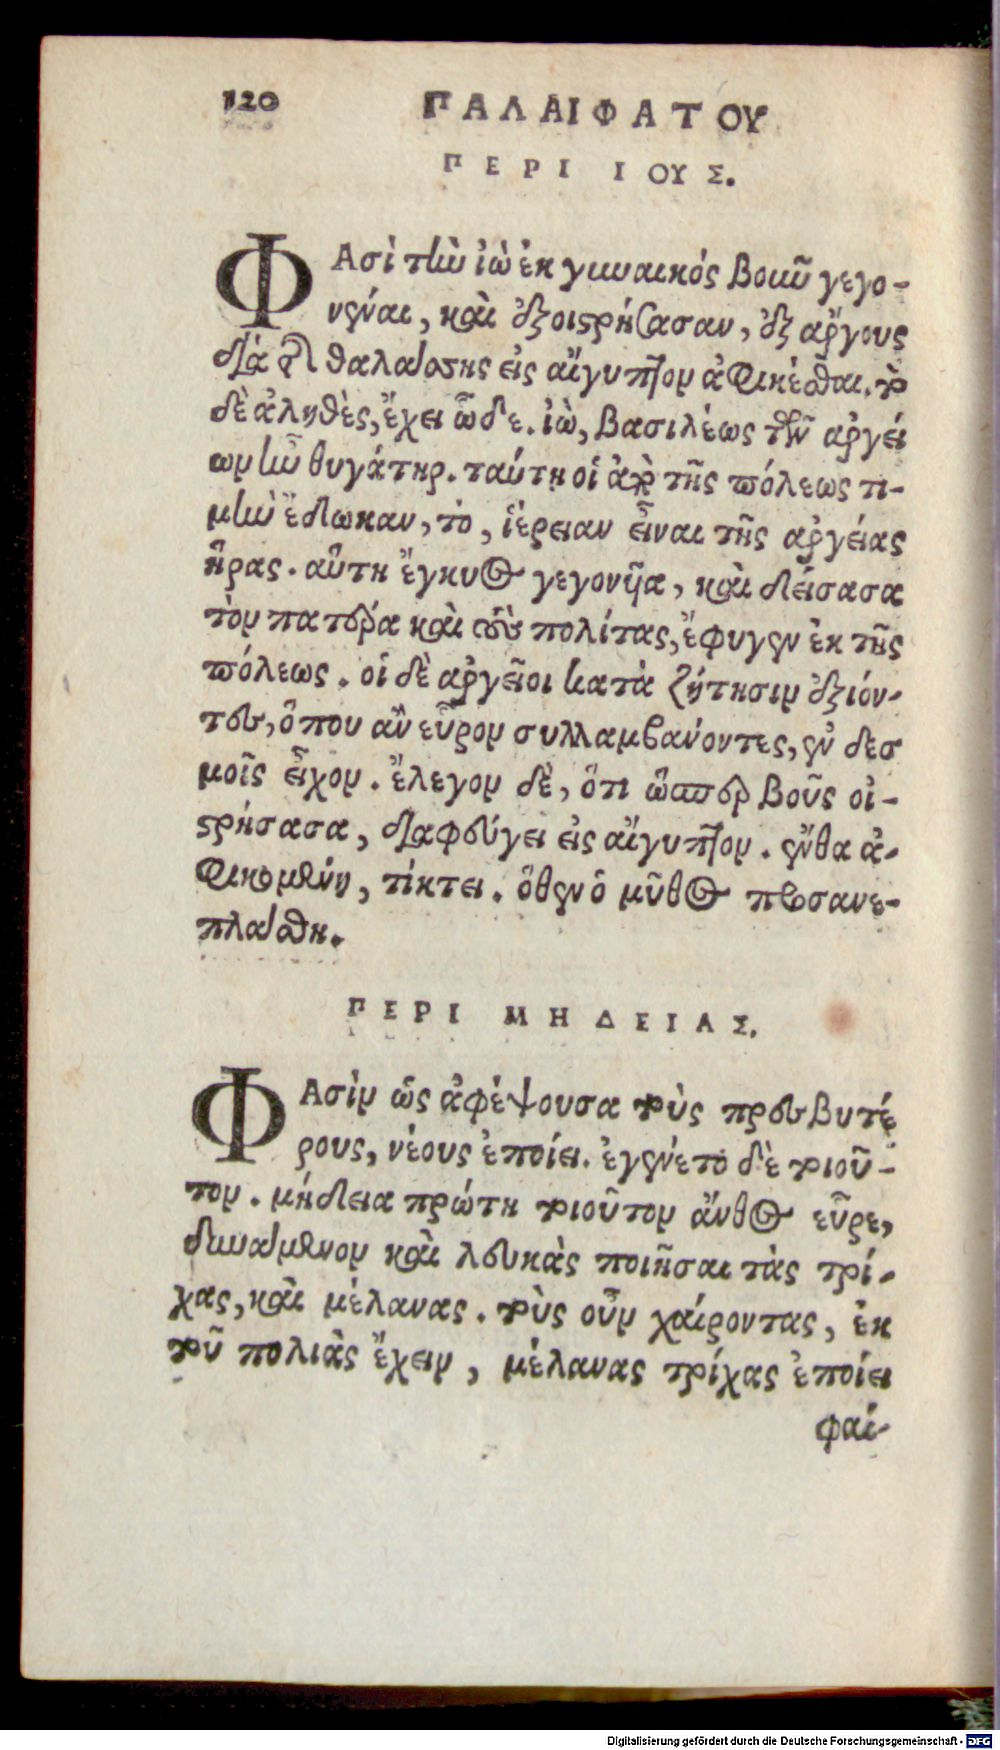 120 ΠΑΛΑΙΦΑΤΟΥ
ΠΕΡΙ ΙΟΥΣ.
ΦΑσὶ τὴν ἰὼ ἐκ γυναικός βοῦν γεγο-
νέναι, καὶ ἐξοιστρήσασαν, ἐξ αῤγους
διὰ τῆς θαλάσσης εἰς αἴγυπτον ἀφικέσθαι. τὸ
δὲ ἀληθὲς, ἔχει ὧδε. ἰὼ, βασιλέως τῶν αῤγεί
ων ἦν θυγάτηρ. ταύτῃ οἱ ἀπὸ τῆς πόλεως τι-
μὴν ἔδωκαν, τὸ, ἱέρειαν εἶναι τῆς αῤγείας
ἥρας. αὕτη ἔγκυος γεγονῦα, καὶ δείσασα
τὸν πατέρα καὶ τοὺς πολίτας, ἔφυγεν ἐκ τῆς
πόλεως. οἱ δὲ αῤγεῖοι κατὰ ζήτησιν ἐξιόν-
τες, ὅπου ἂν εὗρον συλλαμβανόντες, ἐν δεσ
μοῖς εἶχον. ἔλεγον δὲ, ὅτι ὥσπερ βοῦς οἰ-
στρήσασα, διαφεύγει εἰς αἴγυπτον. ἔνθα ἀ-
φικομένη, τίκτει. ὅθεν ὁ μῦθος προσανε-
πλάσθη.
ΠΕΡΙ ΜΗΔΕΙΑΣ.
ΦΑσὶν ὡς ἀφέψουσα τοὺς πρεσβυτέ
ρους, νέους ἐποίει. ἐγένετο δὲ τοιοῦ-
τον. μήδεια πρώτη τοιοῦτον ἄνθος εὗρε,
δυνάμενον καὶ λευκὰς ποιῆσαι τὰς τρί-
χας, καὶ μέλανας. τοὺς οὖν χαίροντας, ἐκ
τοῦ πολιὰς ἔχειν, μέλανας τρίχας ἐποίει
φαί-
Digitalisierung gefördert durch die Deutsche Forschungsgemeinschaft - DFG